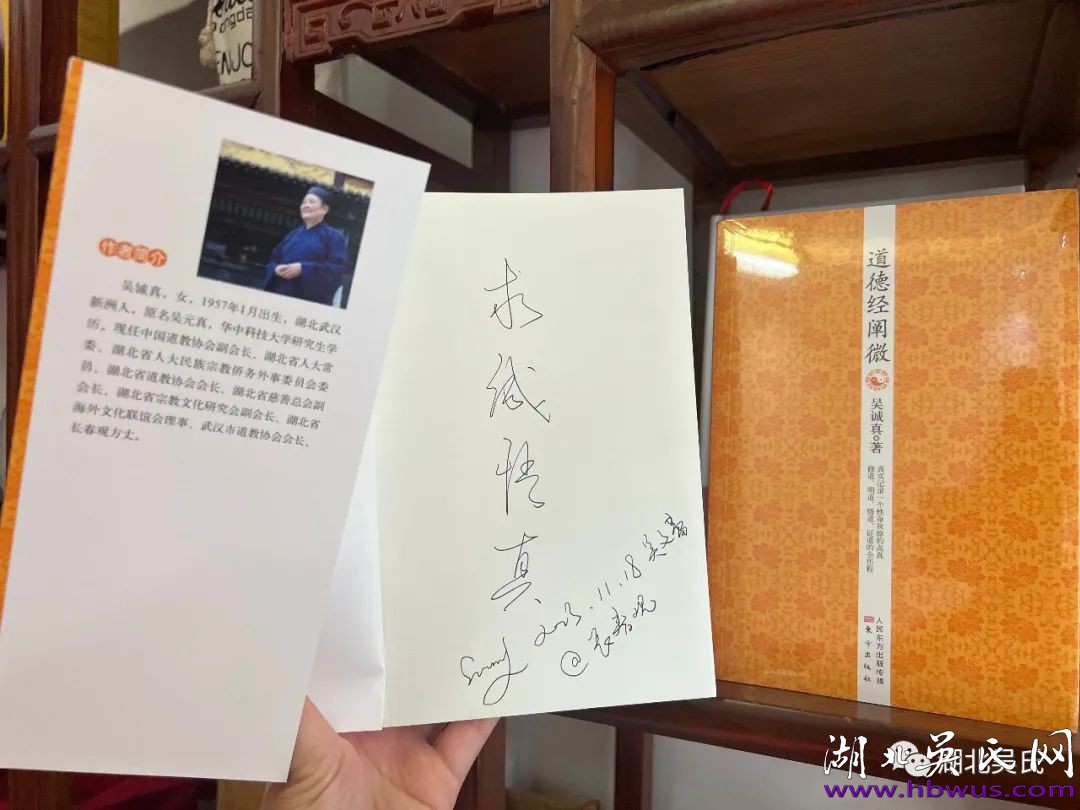 ENJO
作者简介
吴诚真，女，1957年1月出生，湖北武汉
新洲人，原名吴元真，华中科技大学研究生学
历。现任中国道教协会副会长、湖北省人大常
委、湖北省人大民族宗教侨务外事委员会委
员、湖北省道教协会会长、湖北省慈善总会副
会长、湖北省宗教文化研究会副会长、湖北省
海外文化联谊会理事、武汉市道教协会会长、
长春观方丈。
求
诚
悟
真
Sunny 2023.11.18
@长春观
道德经阐微
吴诚真 著
真实记录一个性命双修的高真
修道、明道、悟道、证道的全历程
人民东方出版传媒
东方出版社
湖北吴氏网
湖北吴氏
www.hbwus.com